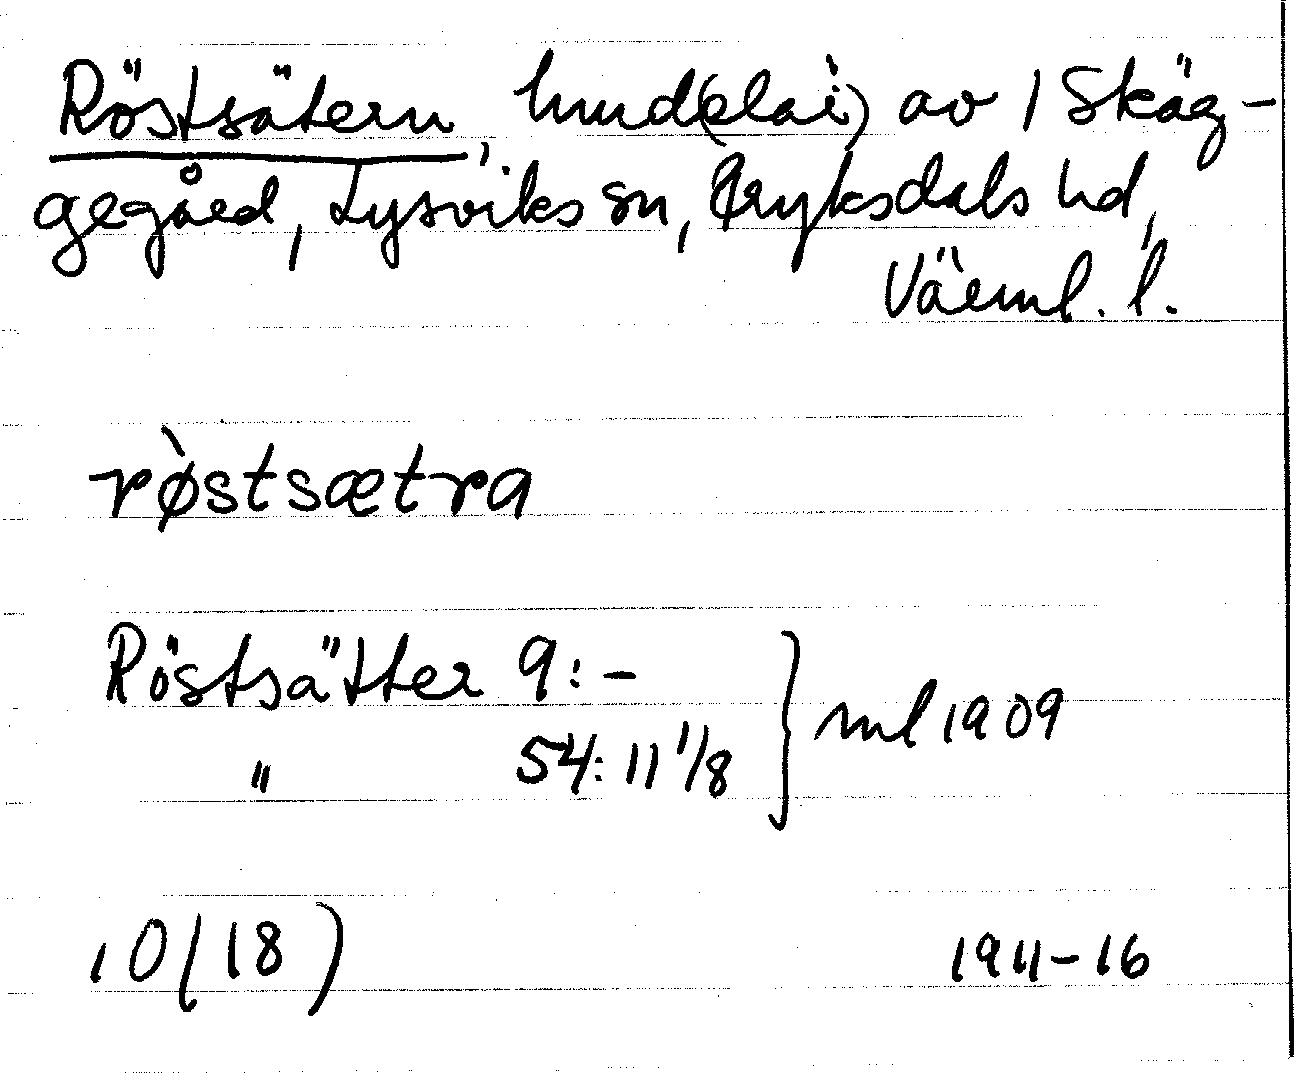 Röstsätern, hmd(elar) av 1 Skäg-
gegård, Lysviks sn, Fryksdals hd,
Värml. l.
rø̀stsætra
Röstsätter 9:-
" 54:11 1/8 } ml 1909
10(18) 1911-16